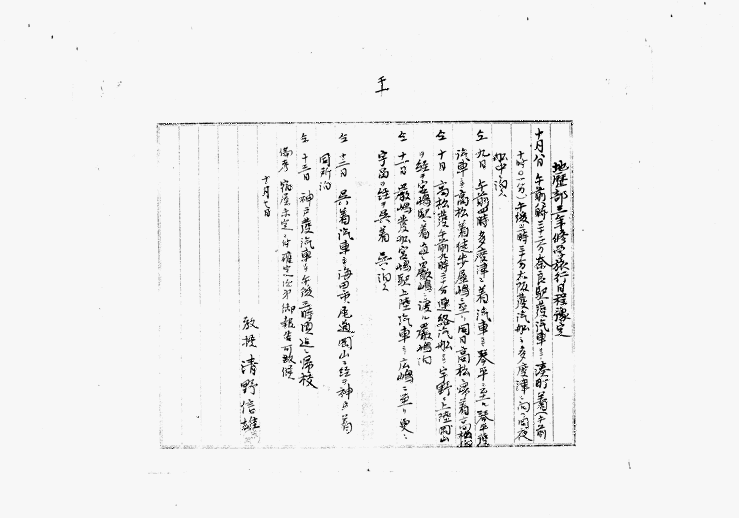 地歴部三年修学旅行日程豫定
十月八日 午前 時三十二分奈良駅発汽車ニテ湊町着(午前
十時〇一分)午後二時三十分大阪発汽船ニテ多度津ニ向フ同夜
船中泊
仝九日 午前四時多度津ニ着汽車ニテ琴平ニ至リ琴平発
汽車ニテ高松着徒歩屋嶋ニ至リ同日高松帰着高松泊
仝十日 高松発午前九時三十分連絡汽船ニテ宇野ニ上陸岡山
ヲ経テ宮嶋駅ニ着直ニ厳嶋ニ渡ル厳嶋泊
仝十一日 厳嶋発船宮嶋駅上陸汽車ニテ広嶋ニ至リ更ニ
宇品ヲ経テ呉着 呉ニ泊ス
仝十二日 呉着汽車ニテ海田市尾道岡山ヲ経テ神戸着
同所泊
仝十三日 神戸発汽車ニテ午後三時頃迄ニ帰校
備考 宿屋未定ニ付確定次第御報告可致候
十月七日
教授 清野信雄